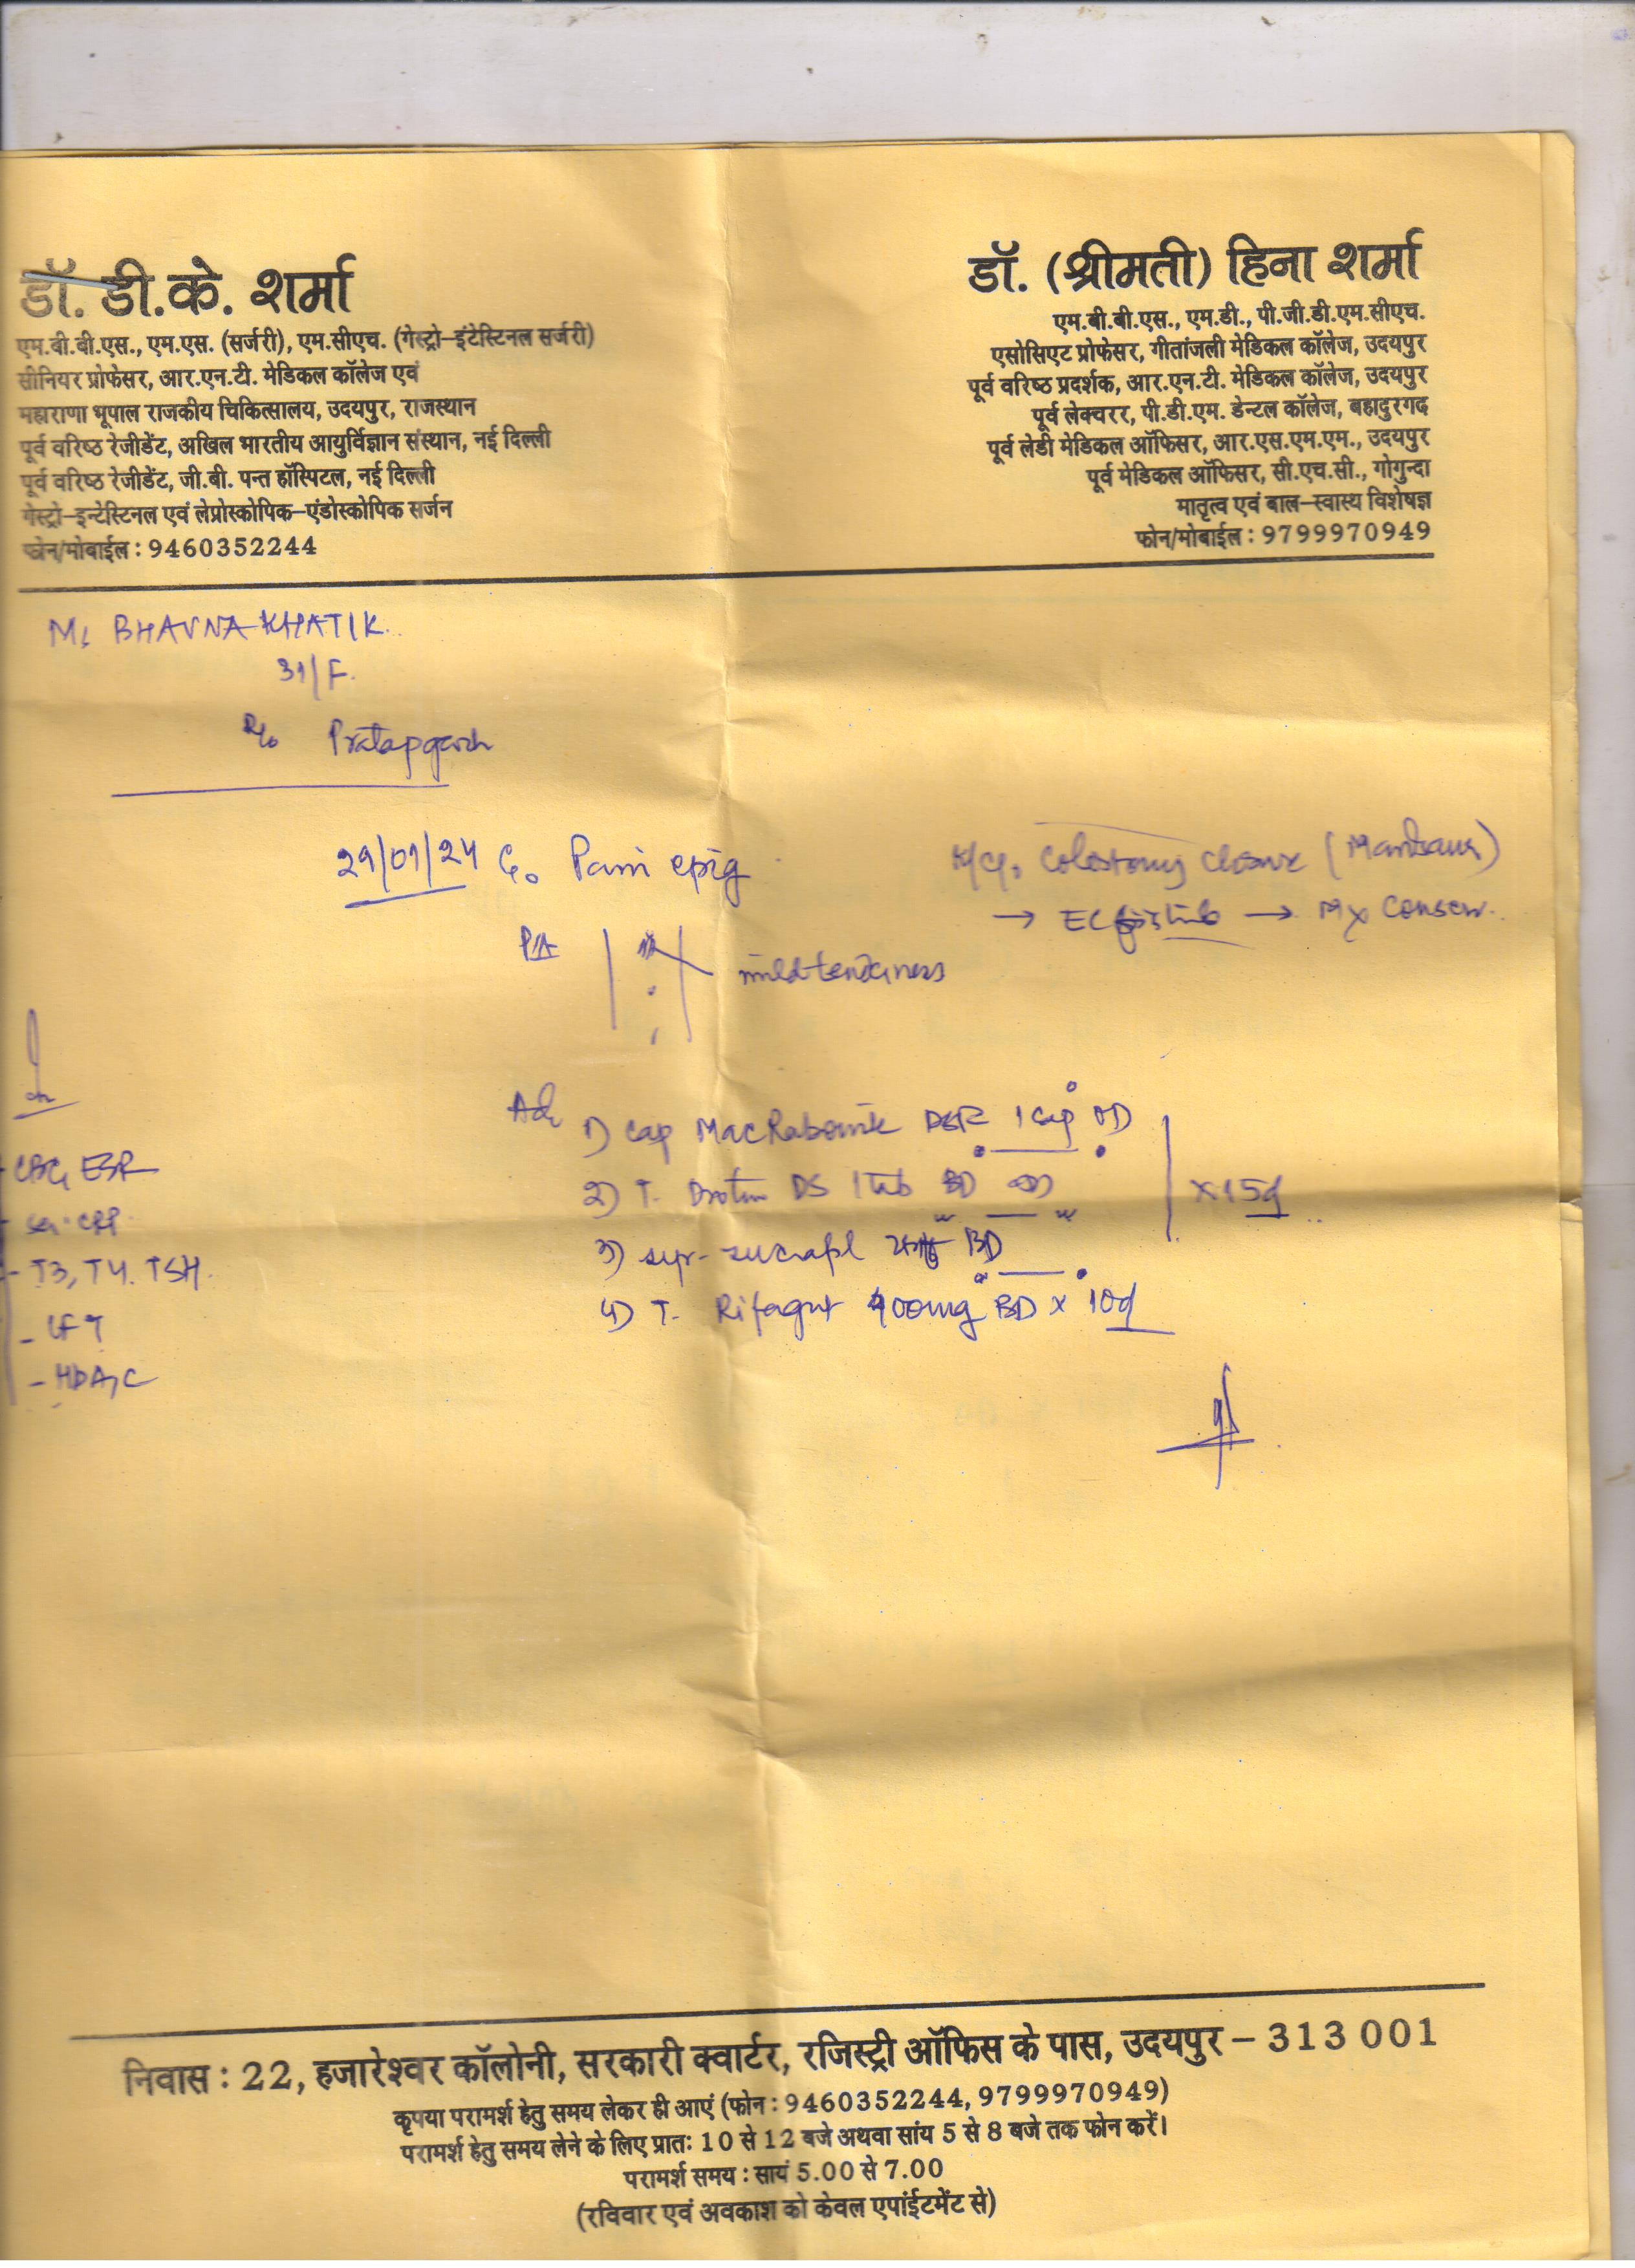 डॉ. डी.के. शर्मा
एम.बी.बी.एस., एम.एस. (सर्जरी), एम.सीएच. (गेस्ट्रो-इंटेस्टिनल सर्जरी)
सीनियर प्रोफेसर, आर.एन.टी. मेडिकल कॉलेज एवं
महाराणा भूपाल राजकीय चिकित्सालय, उदयपुर, राजस्थान
पूर्व वरिष्ठ रेजीडेंट, अखिल भारतीय आयुर्विज्ञान संस्थान, नई दिल्ली
पूर्व वरिष्ठ रेजीडेंट, जी.बी. पन्त हॉस्पिटल, नई दिल्ली
गेस्ट्रो-इन्टेस्टिनल एवं लेप्रोस्कोपिक-एंडोस्कोपिक सर्जन
फोन/मोबाईल : 9460352244
डॉ. (श्रीमती) हिना शर्मा
एम.बी.बी.एस., एम.डी., पी.जी.डी.एम.सीएच.
एसोसिएट प्रोफेसर, गीतांजली मेडिकल कॉलेज, उदयपुर
पूर्व वरिष्ठ प्रदर्शक, आर.एन.टी. मेडिकल कॉलेज, उदयपुर
पूर्व लेक्चरर, पी.डी.एम. डेन्टल कॉलेज, बहादुरगढ़
पूर्व लेडी मेडिकल ऑफिसर, आर.एस.एम.एम., उदयपुर
पूर्व मेडिकल ऑफिसर, सी.एच.सी., गोगुन्दा
मातृत्व एवं बाल-स्वास्थ विशेषज्ञ
फोन/मोबाईल : 9799970949
Ms BHAVNA KHATIK.
31/F.
R/o Pratapgarh
29/01/24 C/o Pain epig
K/C/o Colostomy closure (Mandsaur)
→ EC fistula → Mx Conserv.
P/A
mild tenderness
Adv 1) Cap DSR 1 cap OD
2) T. Drotin DS 1 tab BD
x 15d
3) syr- sucrafil BD
4) T. Rifagut 400mg BD x 10d
- CBC, ESR
- Ser. CRP
- T3, T4. TSH.
- LFT
- HbA1C
निवास : 22, हजारेश्वर कॉलोनी, सरकारी क्वार्टर, रजिस्ट्री ऑफिस के पास, उदयपुर – 313 001
कृपया परामर्श हेतु समय लेकर ही आएं (फोन : 9460352244, 9799970949)
परामर्श हेतु समय लेने के लिए प्रातः 10 से 12 बजे अथवा सांय 5 से 8 बजे तक फोन करें।
परामर्श समय : सायं 5.00 से 7.00
(रविवार एवं अवकाश को केवल एपांईटमेंट से)